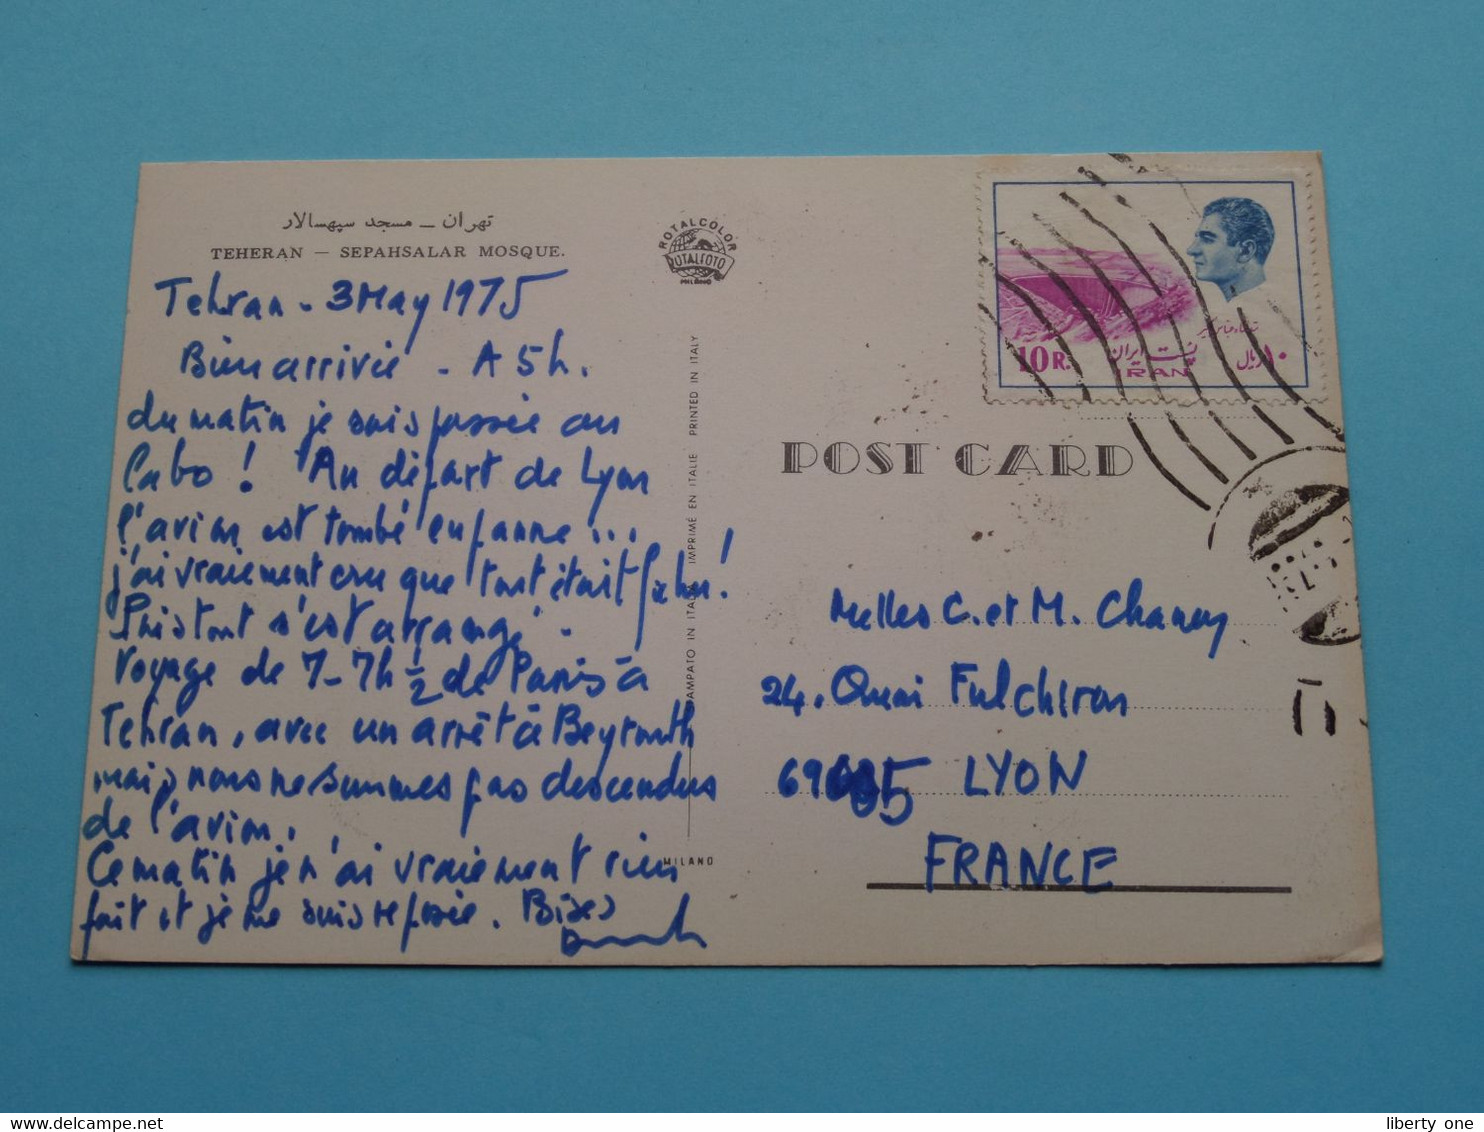 تهران – مسجد سپهسالار
TEHERAN – SEPAHSALAR MOSQUE.
Tehran - 3 May 1975
Bien arrivée - A 5h.
du matin je suis passée au
Cabo ! Au départ de Lyon
l'avion est tombé en panne...
j'ai vraiment cru que tout était !
Puis tout s'est arrangé.
Voyage de 7 - 7h 1/2 de Paris à
Tehran, avec un arrêt à Beyrouth
mais nous ne sommes pas descendus
de l'avion.
Ce matin je n'ai vraiment rien
fait et je me suis reposée. Bises
ROTALCOLOR
ROTALFOTO
MILANO
STAMPATO IN ITALIA IMPRIMÉ EN ITALIE PRINTED IN ITALY
MILANO
10 R.
پست ایران
۱۰ ریال
IRAN
POST CARD
Melles C. et M. Chaney
24, Quai Fulchiron
69005 LYON
FRANCE
liberty one